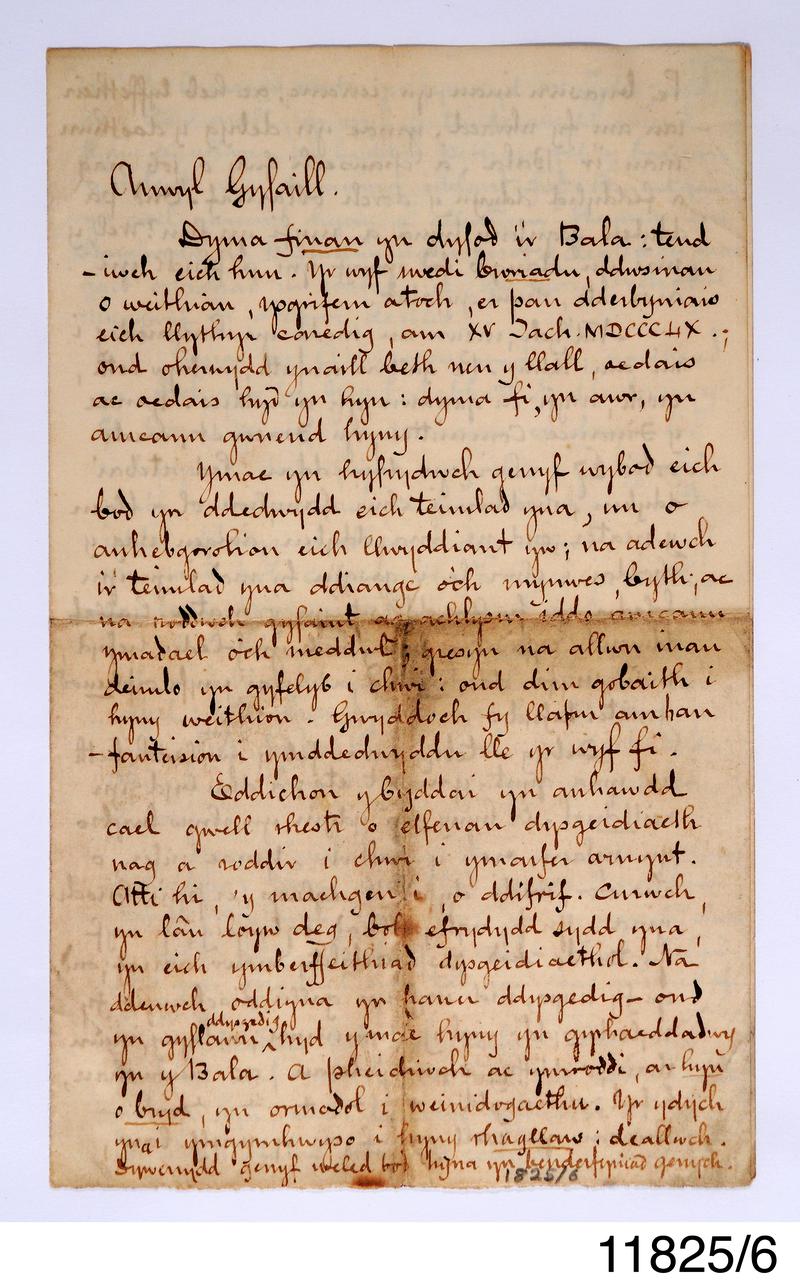 Anwyl Gyfaill.
Dyma finan yn dyfod i'r Bala : tend
-iwch eich hun. Yr wyf wedi bwriadu, ddwsinau
o weithiau, ysgrifenu atoch, er pan dderbyniais
eich llythyr caredig, am XV Tach. MDCCCLX. ;
ond oherwydd ynaill beth neu y llall, oedais
ac oedais hyd yn hyn : dyma fi, yn awr, yn
amcanu gwneud hyny.
Ymae yn hyfrydwch genyf wybod eich
bod yn ddedwydd eich teimlad yna, un o
anhebgorolion eich llwyddiant yw; na adewch
i'r teimlad yna ddiange o'ch mynwes, byth, ac
na roddwch gyfaint ag achlysur iddo amcanu
ymadael o'ch meddwl; gresyn na allwn inau
deimlo yn gyfelyb i chwi : ond dim gobaith i
hyny weithion. Gwyddoch fy llafur am
-fanteision i ymddedwyddu lle yr wyf fi.
Eddichon y byddai yn anhawdd
cael gwell rhestr o elfenau dysgeidiaeth
nag a roddir i chwi i ymarfer arnynt.
Atti hi, 'y machgen i, o ddifrif. Curwch,
yn lân loyw deg, bob efrydydd sydd yna,
yn eich ymberffeithiad dysgeidiaethol. Na
ddeuwch oddiyna yn haner ddysgedig - ond
yn gyflawn ddysgedig hyd ymae hyny yn gyrhaeddadwy
yn y Bala. A pheidiwch ac ymroddi, ar hyn
o bryd, yn ormodol i weinidogaethu. Yr ydych
yna i ymgymhwyso i hyny rhagllaw : deallwch.
Dywenydd genyf weled bod hyna yn benderfyniad genych.
1825/6
11825/6